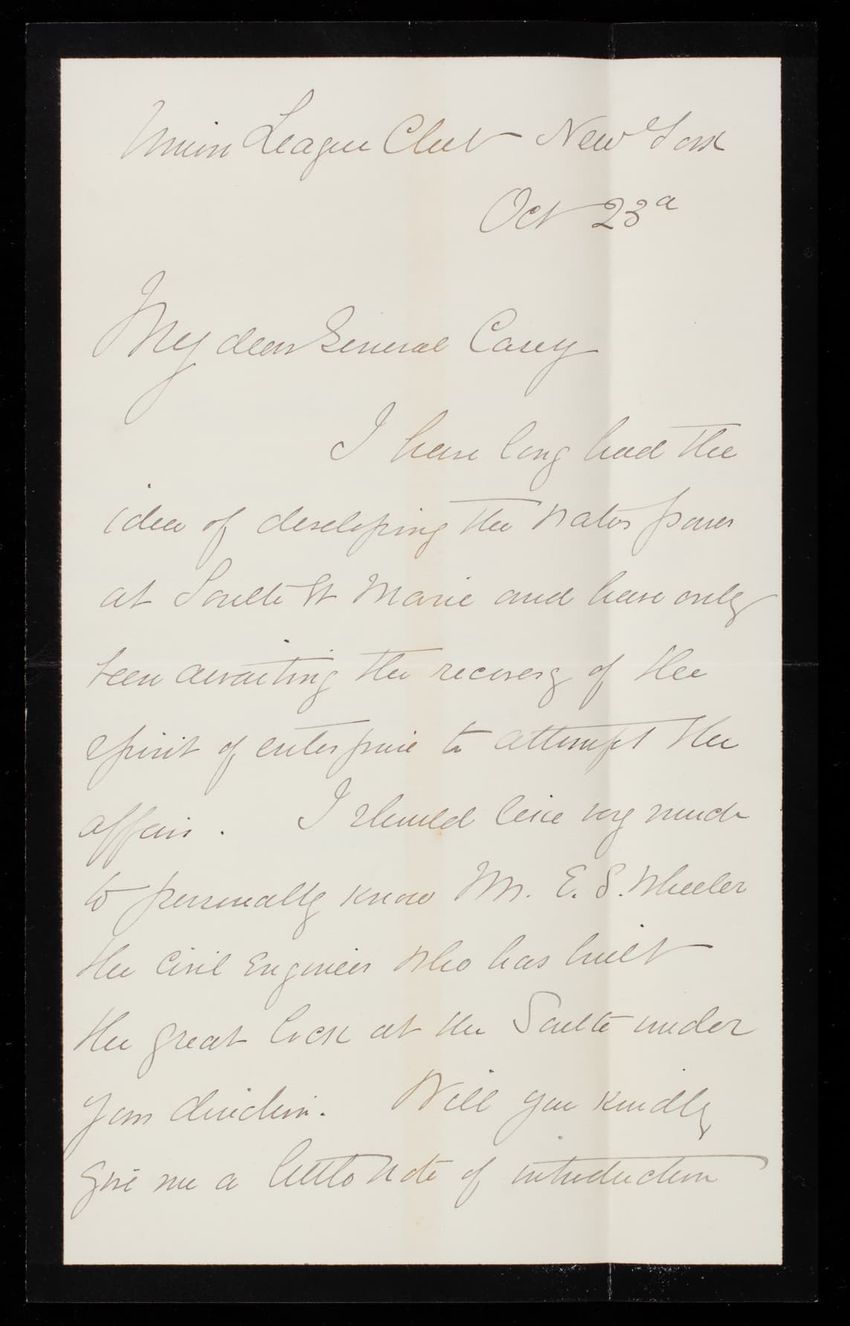 Union League Club - New York
Oct 23d
My dear General Casey
I have long had the
idea of developing the Water power
at Soulte St Marie and have only
been awaiting the recovery of the
spirit of enterprise to attempt the
affair. I should like very much
to personally know Mr. E. S. Wheeler
the Civil Engineer who has built
the great lock at the Soulte under
your direction. Will you kindly
give me a little note of introduction